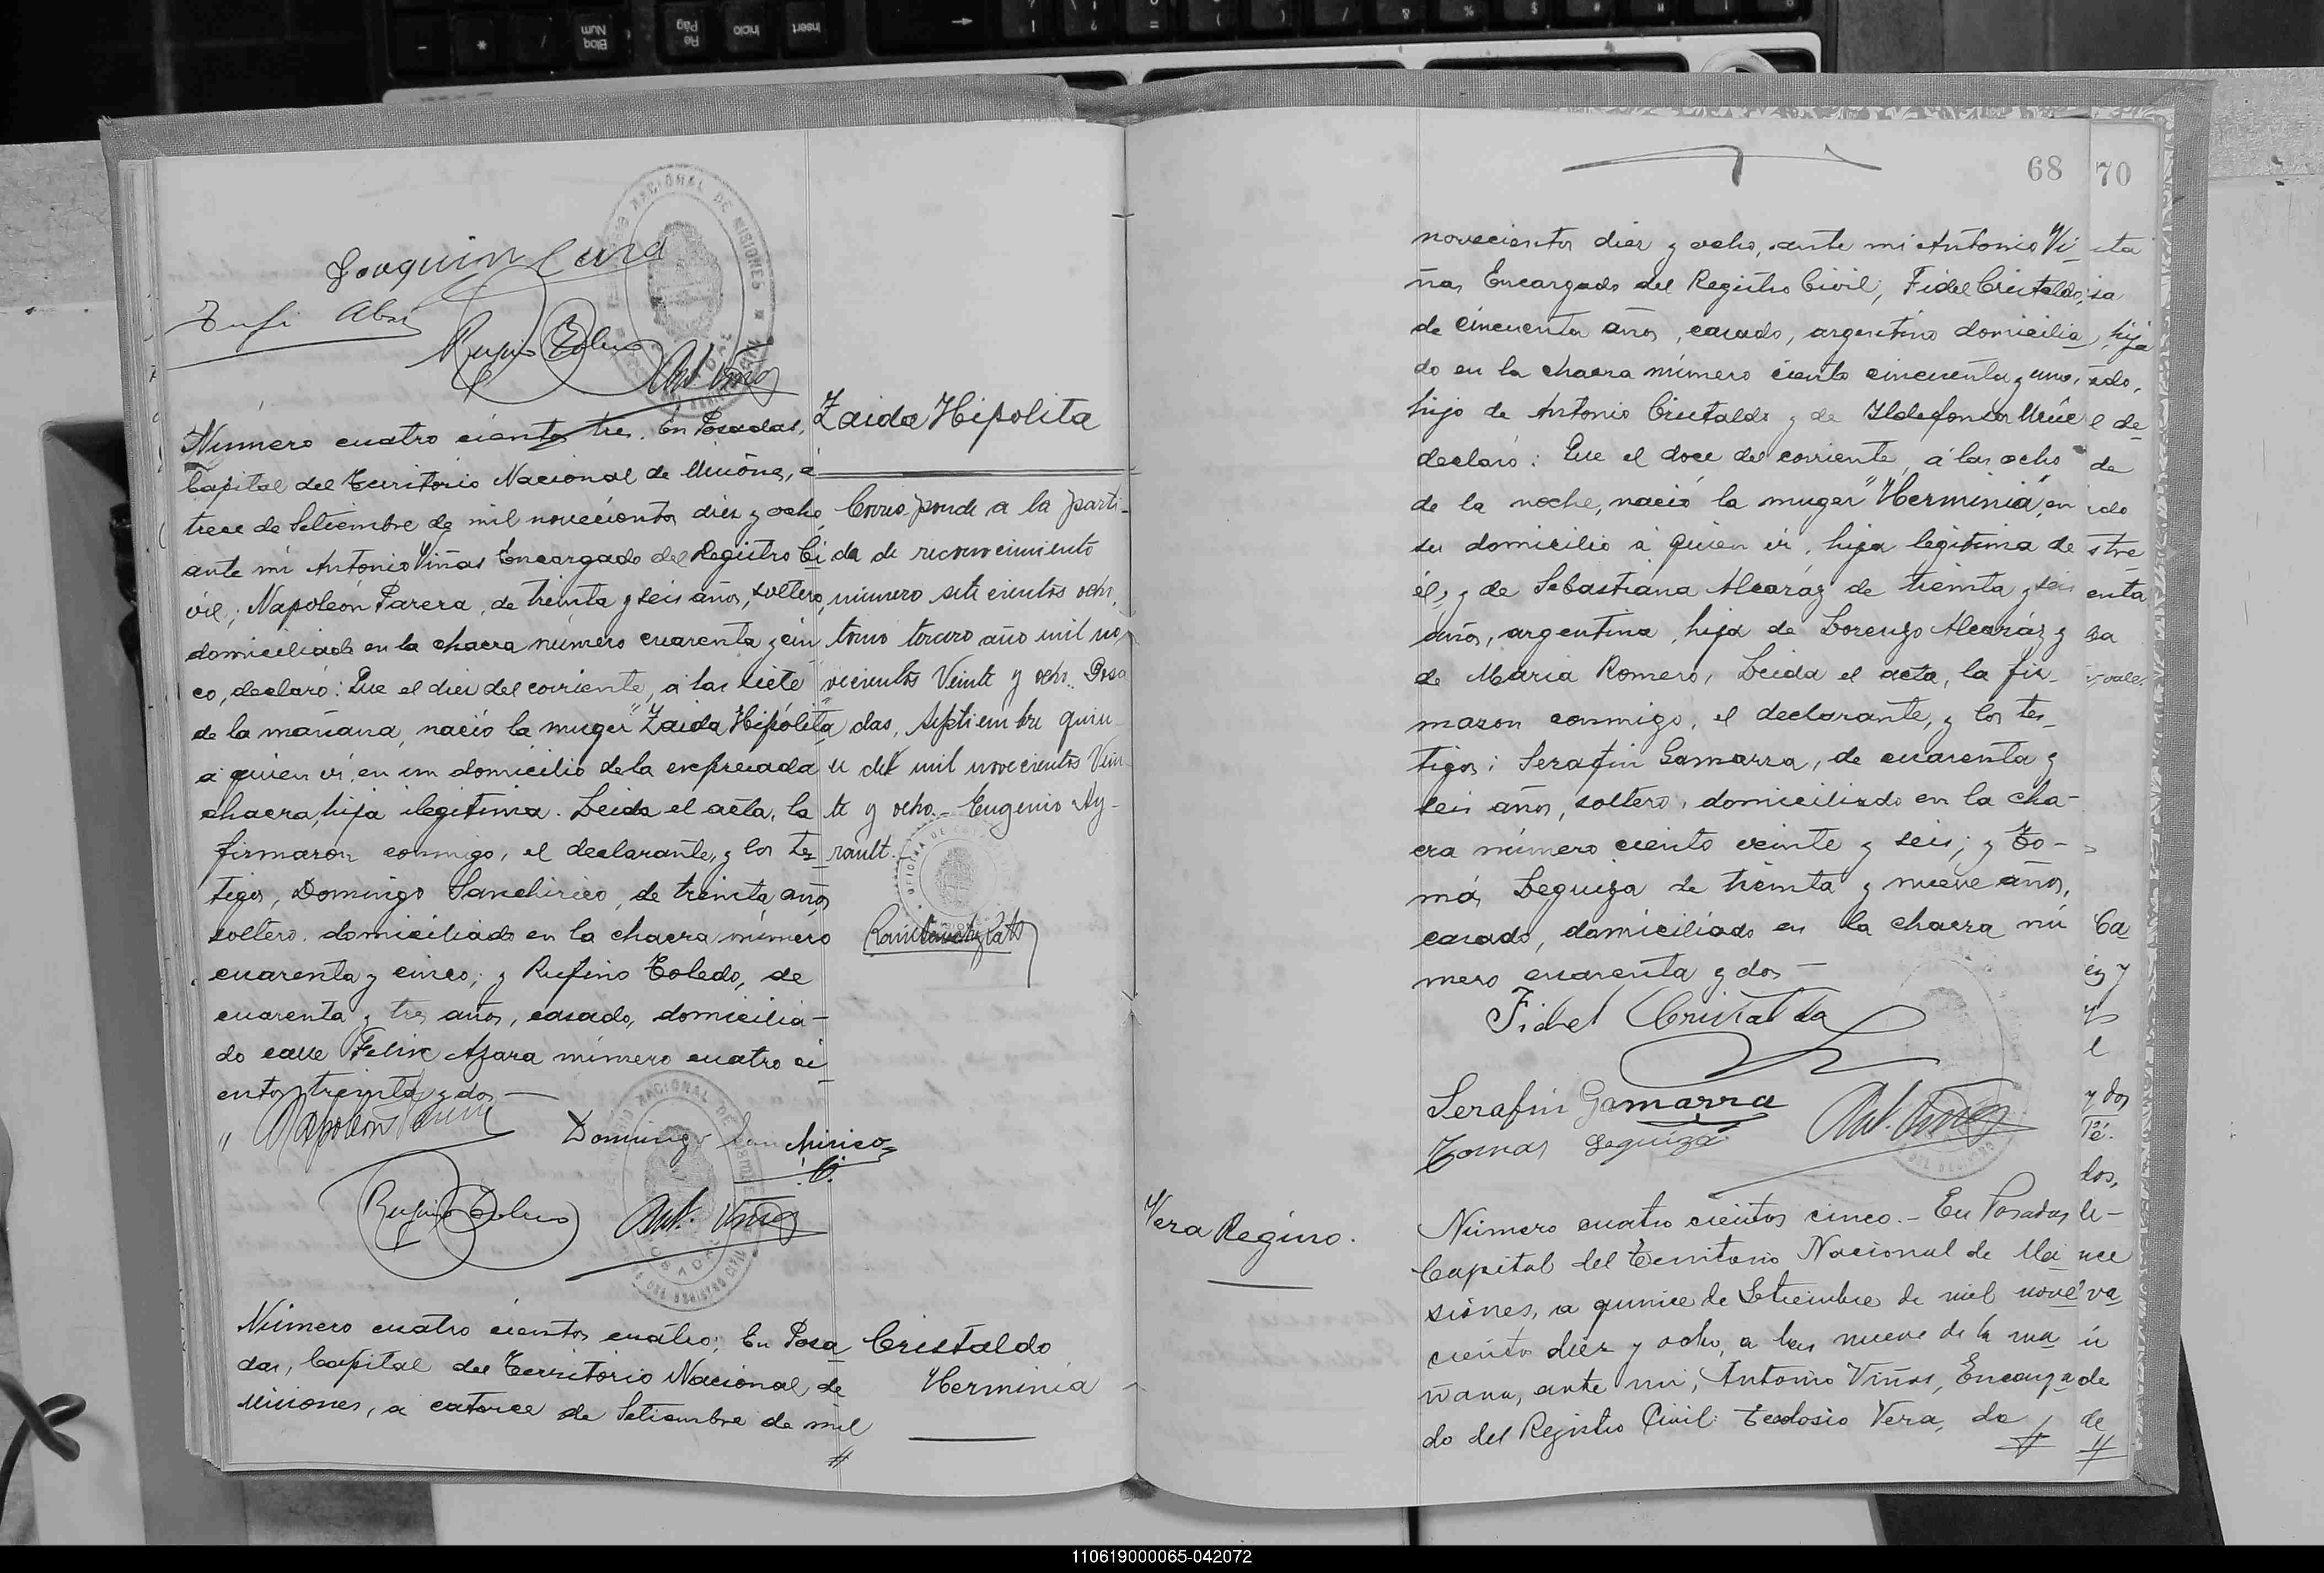 Joaquin Cura
Tufi Abr
Rufino Toledo
Ant. Viñas
Zaida Hipolita
Número cuatro cientos tres. En Posadas,
Capital del Territorio Nacional de Misiones, á
trece de Setiembre de mil novecientos diez y ocho,
ante mi Antonio Viñas Encargado del Registro Ci
vil; Napoleón Parera, de treinta y seis años, soltero,
domiciliado en la chacra número cuarenta y cin
co, declaró: Que el diez del corriente, á las siete
de la mañana, nació la muger "Zaida Hipólita"
a quien vi, en un domicilio de la expresada
chacra, hija ilegitima. Leida el acta, la
firmaron conmigo, el declarante, y los tes
tigos, Domingo Sanchirico, de treinta años
soltero, domiciliado en la chacra número
cuarenta y cinco; y Rufino Toledo, de
cuarenta y tres años, casado, domicilia-
do calle Felix Azara número cuatro ci
entos treinta y dos —
Corresponde a la parti-
da de reconocimiento
número sete cientos ocho,
tomo tercero año mil no,
vecientos Veinte y ocho. Posa
das, Septiembre quin
ce del mil novecientos Vein
te y ocho. — Eugenio Ay-
rault. —
Napoleon Parera
Domingo Sanchirico
Rufino Toledo
Ant. Viñas
Número cuatro cientos cuatro; En Posa
das, Capital del Territorio Nacional de
Misiones, a catorce de Setiembre de mil
Cristaldo
Herminia
68
70
novecientos diez y ocho, ante mi Antonio Vi
ñas Encargado del Registro Civil; Fidel Cristaldo,
de cincuenta años, casado, argentino domicilia
do en la chacra número ciento cincuenta y uno,
hijo de Antonio Cristaldo y de Ildefonsa
declaró: Que el doce del corriente á las ocho
de la noche, nació la muger "Herminia", en
su domicilio á quien vi, hija legitima de
él, y de Sebastiana Alcaráz de treinta y seis
años, argentina, hija de Lorenzo Alcaráz y
de Maria Romero, Leida el acta, la fir-
maron conmigo, el declarante, y los tes-
tigos; Serafin Gamarra, de cuarenta y
seis años, soltero, domiciliado en la cha-
cra número ciento veinte y seis; y To-
más Leguiza de treinta y nueve años,
casado, domiciliado en la chacra nú
mero cuarenta y dos —
Fidel Cristaldo
Serafin Gamarra
Ant. Viñas
Tomas Leguiza
Vera Regino.
Número cuatro cientos cinco. — En Posadas
Capital del Territorio Nacional de Mi
siones, a quince de Setiembre de mil nove
cientos diez y ocho, a las nueve de la ma
ñana, ante mi, Antonio Viñas, Encarga
do del Registro Civil: Teodosio Vera, de
110619000065-042072